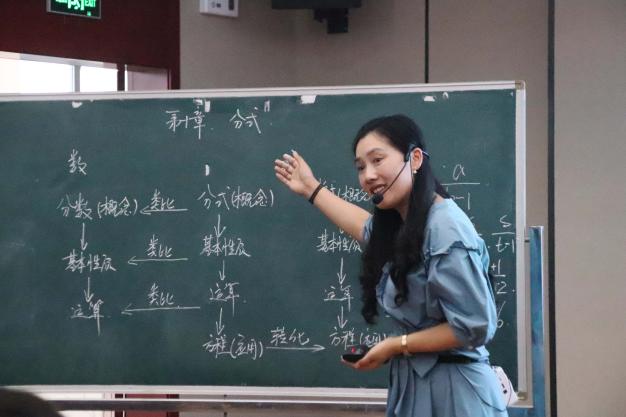 EXIT
第十章 分式
数
分数(概念) 类比 分式(概念) (概念) a/-1
基本性质 类比 基本性质 基本 s/t-1
运算 类比 运算 运算
方程(应用) 转化 方程